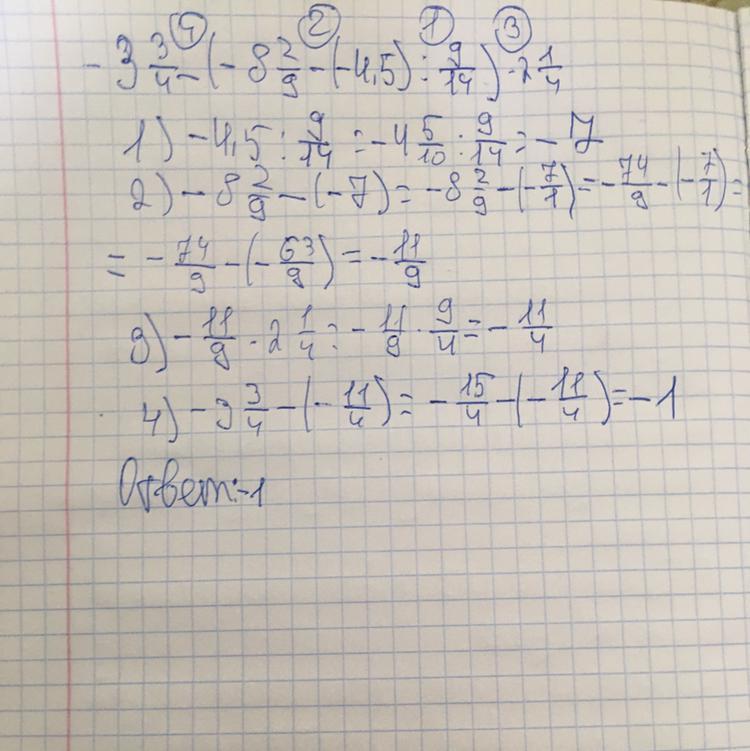 ④ ② ① ③
- 3 3/4 - (- 8 2/9 - (-4,5) : 9/14) · 2 1/4
1) -4,5 : 9/14 = -4 5/10 : 9/14 = -7
2) - 8 2/9 - (-7) = -8 2/9 - (-7/1) = -74/9 - (-7/1) =
= - 74/9 - (-63/9) = - 11/9
3) - 11/9 · 2 1/4 = - 11/9 · 9/4 = - 11/4
4) - 3 3/4 - (- 11/4) = - 15/4 - (- 11/4) = -1
Ответ: -1